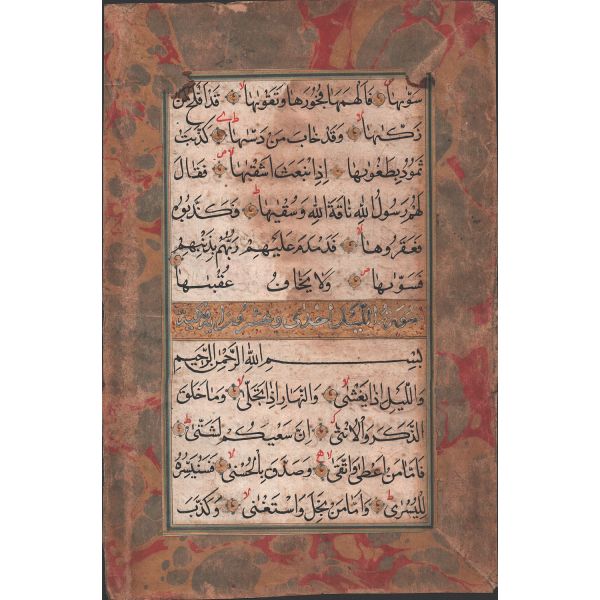 سَوّٰىهَا فَاَلْهَمَهَا فُجُورَهَا وَتَقْوٰىهَا قَدْ اَفْلَحَ مَنْ
زَكّٰىهَا وَقَدْ خَابَ مَنْ دَسّٰىهَا كَذَّبَتْ
ثَمُودُ بِطَغْوٰىهَا اِذِ انْبَعَثَ اَشْقٰىهَا فَقَالَ
لَهُمْ رَسُولُ اللّٰهِ نَاقَةَ اللّٰهِ وَسُقْيٰهَا فَكَذَّبُوهُ
فَعَقَرُوهَا فَدَمْدَمَ عَلَيْهِمْ رَبُّهُمْ بِذَنْبِهِمْ
فَسَوّٰىهَا وَلَا يَخَافُ عُقْبٰهَا
سورة الليل احدى وعشرون اية
بِسْمِ اللّٰهِ الرَّحْمٰنِ الرَّحِيمِ
وَالَّيْلِ اِذَا يَغْشٰى وَالنَّهَارِ اِذَا تَجَلّٰى وَمَا خَلَقَ
الذَّكَرَ وَالْاُنْثٰى اِنَّ سَعْيَكُمْ لَشَتّٰى
فَاَمَّا مَنْ اَعْطٰى وَاتَّقٰى وَصَدَّقَ بِالْحُسْنٰى فَسَنُيَسِّرُهُ
لِلْيُسْرٰى وَاَمَّا مَنْ بَخِلَ وَاسْتَغْنٰى وَكَذَّبَ